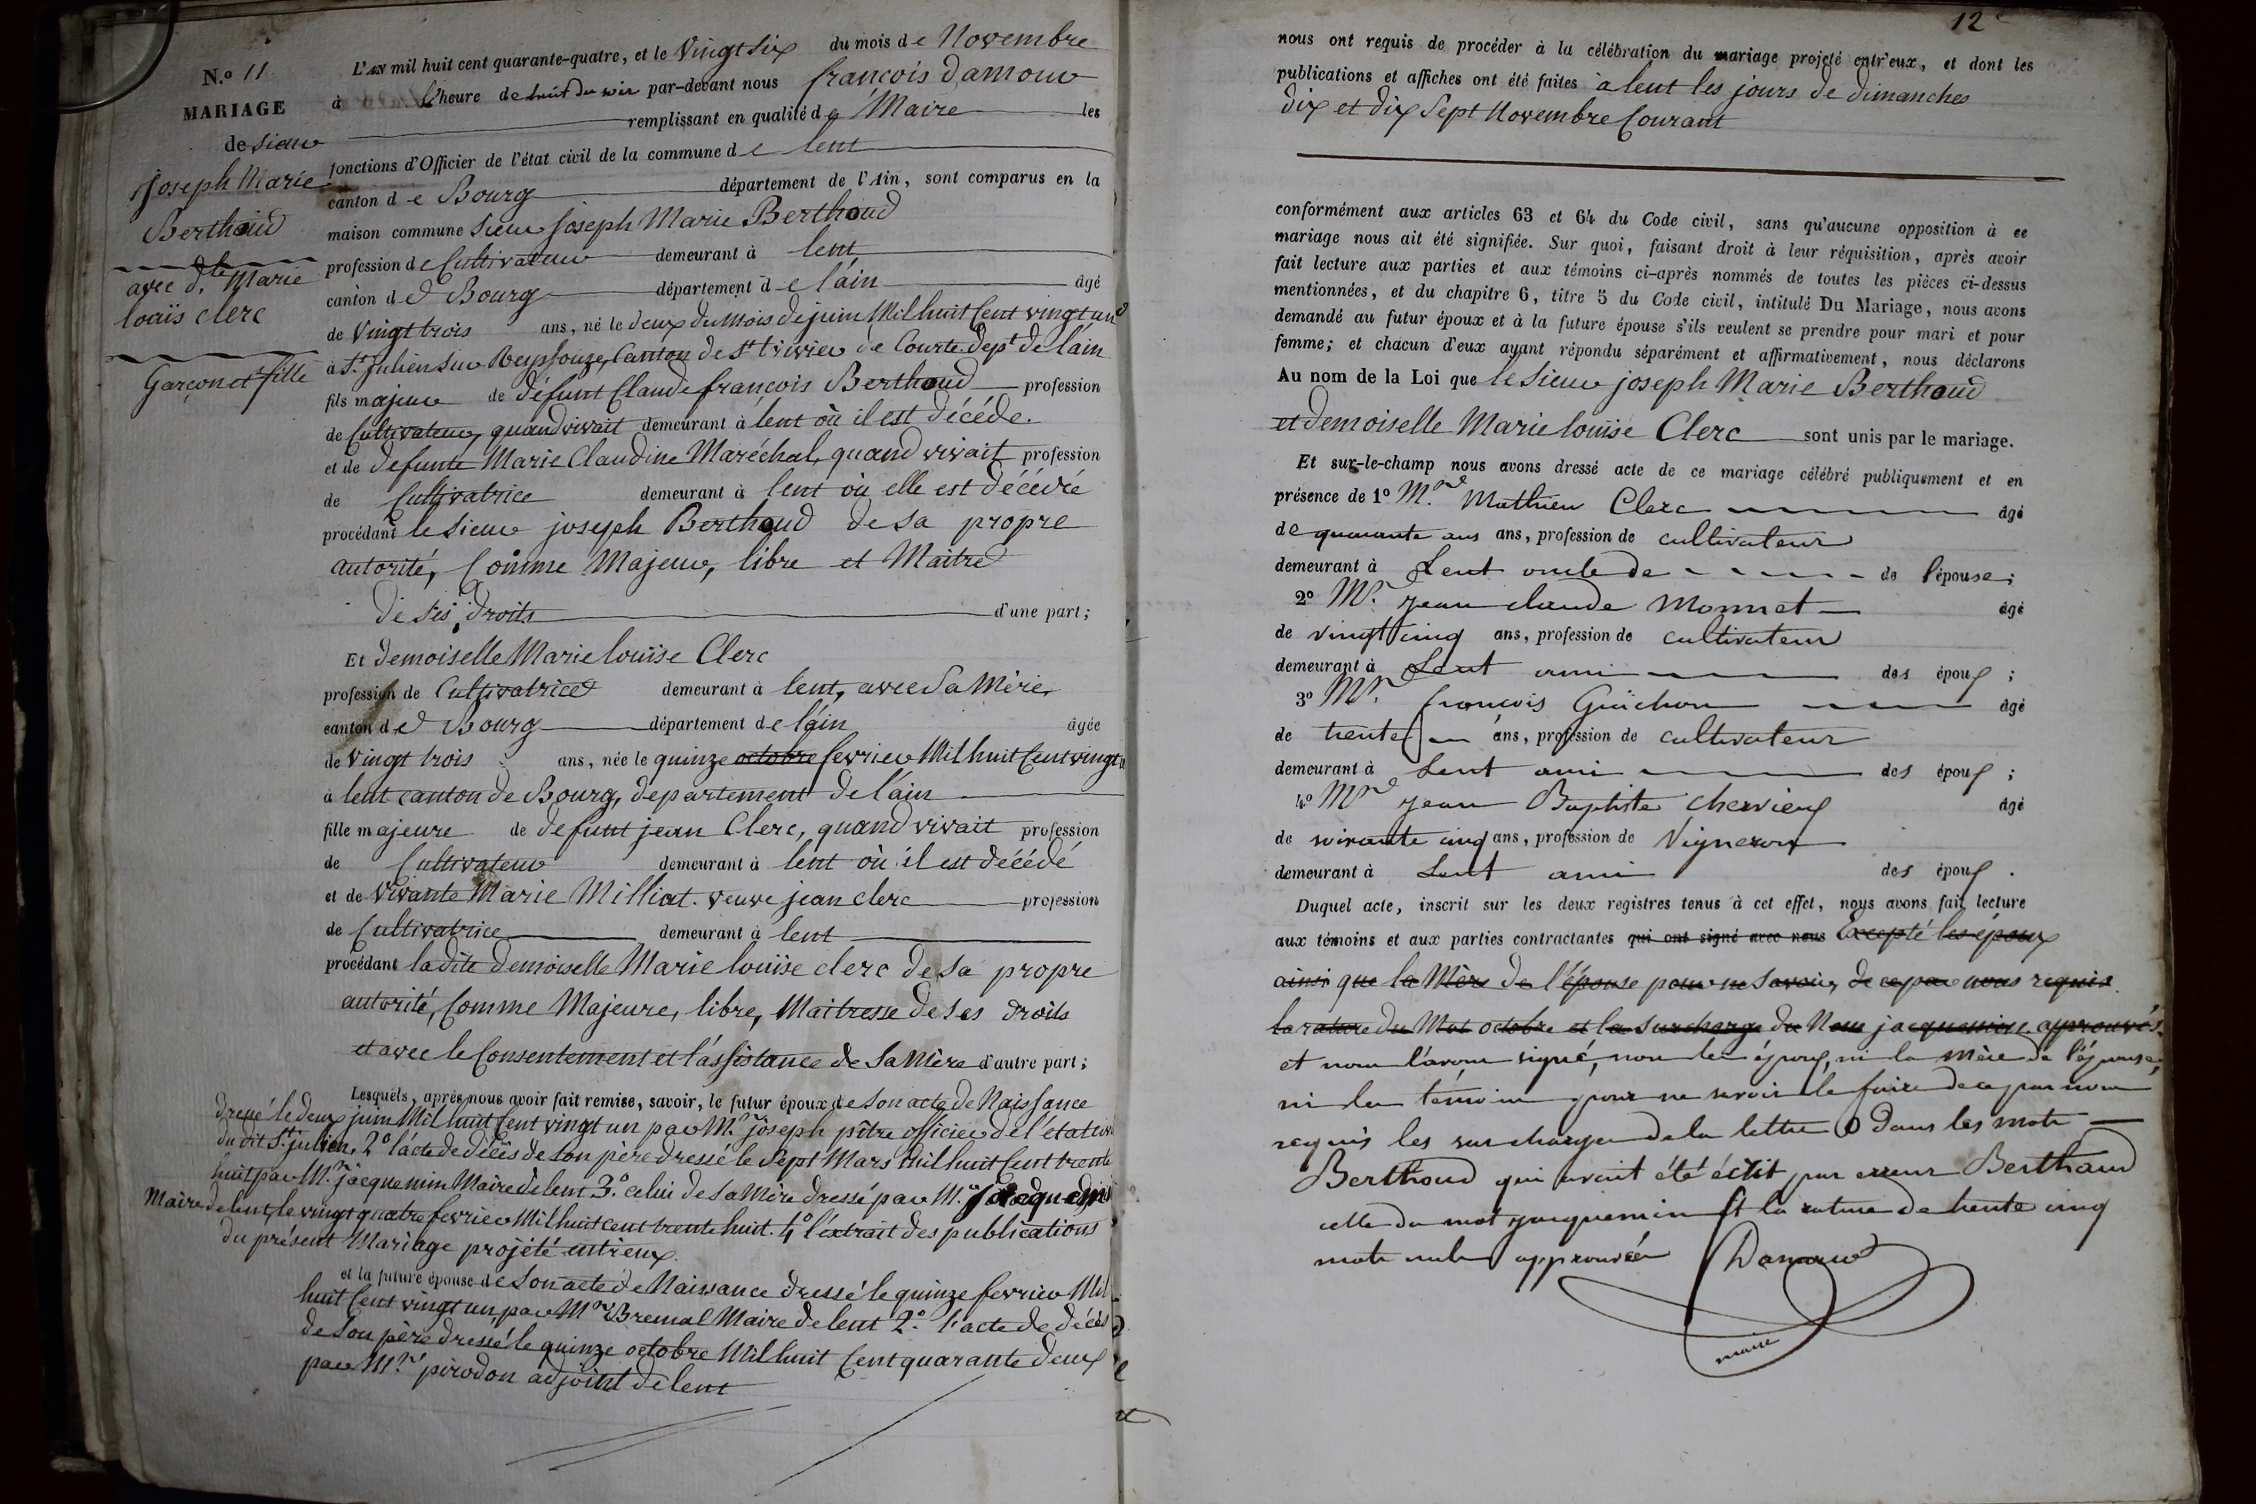 N.o 11
MARIAGE
de sieur
joseph Marie
Berthoud
avec d.lle Marie
louïs clerc
Garçon et fille
L'AN mil huit cent quarante-quatre, et le Vingt six du mois de Novembre
à l'heure de huit du soir par-devant nous françois damour
remplissant en qualité de Maire les
fonctions d'Officier de l'état civil de la commune de lent
canton de Bourg département de l'Ain, sont comparus en la
maison commune sieur joseph Marie Berthoud
profession de Cultivateur demeurant à lent
canton de Bourg département de l'ain âgé
de Vingt trois ans, né le deux du mois de juin Mil huit Cent vingt un
à St. julien sur Reyssouze, Canton de st trivier de Courte dept de l'ain
fils majeur de défunt Claude françois Berthoud profession
de Cultivateur, quand vivait demeurant à lent où il est décédé.
et de defunte Marie Claudine Maréchal, quand vivait profession
de Cultivatrice demeurant à lent où elle est décédée
procédant le sieur joseph Berthoud de sa propre
autorité, Comme Majeur, libre et Maitre
de ses droits d'une part;
Et demoiselle Marie louïse Clerc
profession de Cultivatrice demeurant à lent, avec sa Mère,
canton de Bourg département de l'ain âgée
de Vingt trois ans, née le quinze octobre fevrier Mil huit Cent vingt
à lent canton de Bourg, departement de l'ain
fille majeure de defunt jean Clerc, quand vivait profession
de Cultivateur demeurant à lent où il est décédé
et de Vivante Marie Milliat. veuve jean clerc profession
de Cultivatrice demeurant à lent
procédant la dite demoiselle Marie louïse clerc de sa propre
autorité, Comme Majeure, libre, Maitresse de ses droits
et avec le Consentement et l'assistance de sa Mère d'autre part;
Lesquels, après nous avoir fait remise, savoir, le futur époux de son acte de Naissance
dressé le deux juin Mil huit Cent vingt un par Mr. joseph pitre officier de l'etat
du dit St. julien. 2o l'acte de décès de son père dressé le sept Mars Mil huit Cent trente
huit par Mr. jacquemin Maire de lent 3o. celui de sa Mère dressé par Mr. jacquemin
Maire de lent, le vingt quatre fevrier Mil huit cent trente huit. 4o l'extrait des publications
du présent Mariage projété entr'eux.
et la future épouse de son acte de Naissance dressé le quinze fevrier Mil
huit Cent vingt un, par Mr Bremal Maire de lent 2o. l'acte de décès
de son père dressé le quinze octobre Mil huit Cent quarante deux
par Mr. pirodon adjoint de lent
12
nous ont requis de procéder à la célébration du mariage projeté entr'eux, et dont les
publications et affiches ont été faites à lent les jours de dimanches
dix et dix sept Novembre Courant
conformément aux articles 63 et 64 du Code civil, sans qu'aucune opposition à ce
mariage nous ait été signifiée. Sur quoi, faisant droit à leur réquisition, après avoir
fait lecture aux parties et aux témoins ci-après nommés de toutes les pièces ci-dessus
mentionnées, et du chapitre 6, titre 5 du Code civil, intitulé Du Mariage, nous avons
demandé au futur époux et à la future épouse s'ils veulent se prendre pour mari et pour
femme; et chacun d'eux ayant répondu séparément et affirmativement, nous déclarons
Au nom de la Loi que le sieur joseph Marie Berthoud
et demoiselle Marie louïse Clerc sont unis par le mariage.
Et sur-le-champ nous avons dressé acte de ce mariage célébré publiquement et en
présence de 1o M. Mathieu Clerc âgé
de quarante ans ans, profession de cultivateur
demeurant à Lent oncle de de l'épouse;
2o Mr. jean claude Monnet âgé
de vingt cinq ans, profession de cultivateur
demeurant à Lent ami des époux;
3o Mr. françois Guichon âgé
de trente ans, profession de cultivateur
demeurant à Lent ami des époux;
4o Mr jean Baptiste chervieux âgé
de soixante cinq ans, profession de Vigneron
demeurant à Lent ami des époux.
Duquel acte, inscrit sur les deux registres tenus à cet effet, nous avons fait lecture
aux témoins et aux parties contractantes qui ont signé avec nous Excepté les époux
ainsi que la Mère de l'épouse pour ne savoir, de ce par nous requis.
la rature du Mot octobre et la surcharge du Nom jacquemin approuvés.
et nous l'avons signé, non les époux, ni la mère de l'épouse,
ni les témoins pour ne savoir le faire de ce par nous
requis les surcharges de la lettre O dans les mots
Berthoud qui avait été écrit par erreur Berthaud
celle du mot jacquemin et la rature de trente cinq
mots nuls approuvée Damour
maire